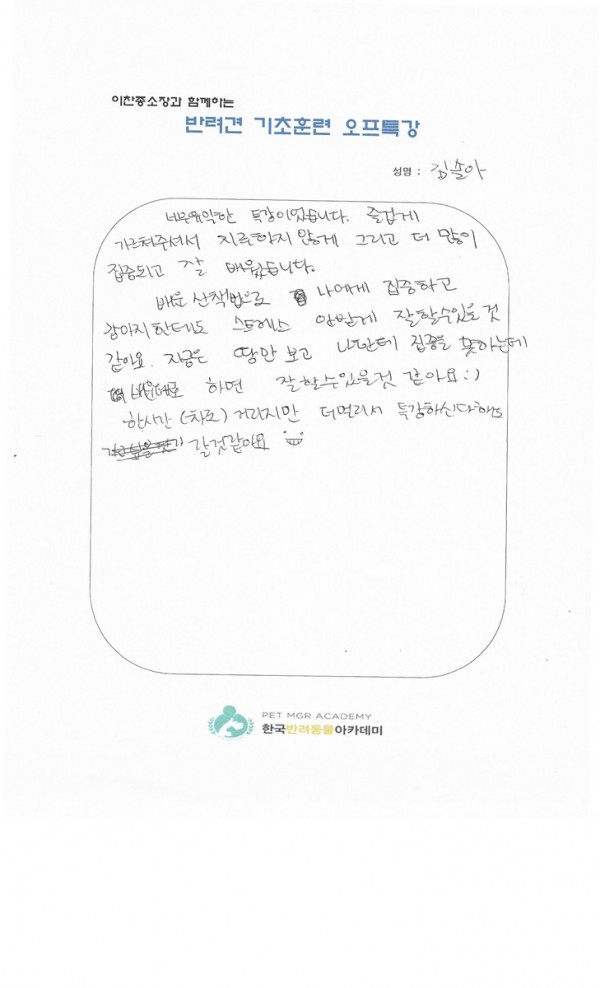 이찬종소장과 함께하는
반려견 기초훈련 오프특강
성명 : 김솔아
너무유익한 특강이었습니다. 즐겁게
가르쳐주셔서 지루하지 않게 그리고 더 많이
집중되고 잘 배웠습니다.
배운 산책법으로 나에게 집중하고
강아지한테도 스트레스 안받게 잘할수있을 것
같아요. 지금은 땅만 보고 나한테 집중을 못하는데
배운대로 하면 잘할수있을것 같아요:)
한시간 (-차로) 거리지만 더멀리서 특강하신다해도
갈것같아요
PET MGR ACADEMY
한국반려동물아카데미